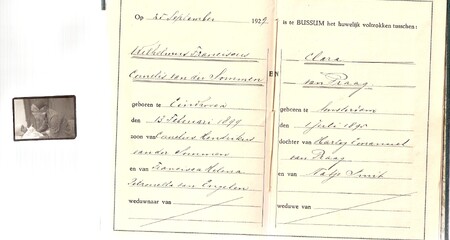 Op 25 September 1929 is te BUSSUM het huwelijk voltrokken tusschen:
Wilhelmus Franciscus
Cornelis van der Sommen
EN
Clara
van Praag
geboren te
den 13 Februari 1899
zoon van Cornelius
van der Sommen
en van Francisca Helena
Petronella van Engelen
weduwnaar van
geboren te Amsterdam
den 1 Juli
dochter van Hartog Emanuel
van Praag
en van Smit
weduwe van